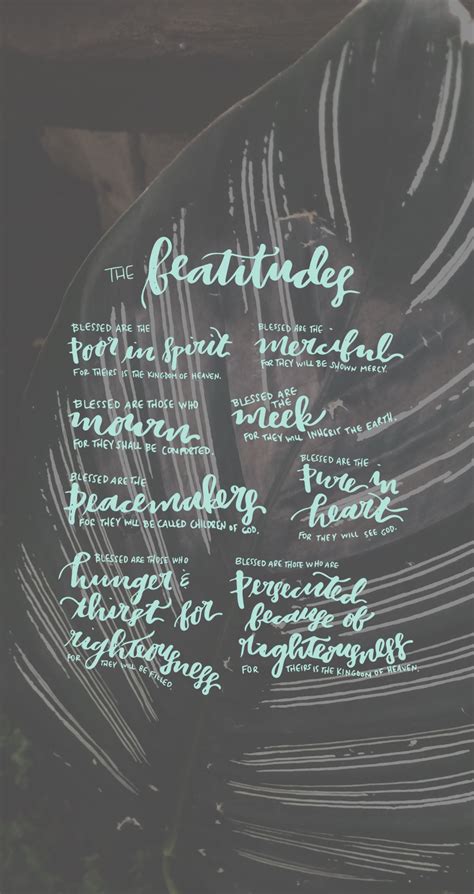 THE beatitudes
BLESSED ARE THE
poor in spirit
FOR THEIRS IS THE KINGDOM OF HEAVEN.
BLESSED ARE THE
merciful
FOR THEY WILL BE SHOWN MERCY.
BLESSED ARE THOSE WHO
mourn
FOR THEY SHALL BE COMFORTED.
BLESSED ARE
THE
meek
FOR THEY WILL INHERIT THE EARTH.
BLESSED ARE THE
peacemakers
FOR THEY WILL BE CALLED CHILDREN OF GOD.
BLESSED ARE THE
pure in
heart
FOR THEY WILL SEE GOD.
BLESSED ARE THOSE WHO
hunger &
thirst for
righteousness
FOR THEY WILL BE FILLED.
BLESSED ARE THOSE WHO ARE
persecuted
because of
righteousness
FOR THEIRS IS THE KINGDOM OF HEAVEN.